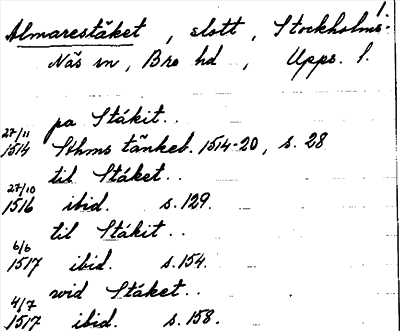 1.
Almarestäket, slott, Stockholms-
Näs sn, Bro hd, Upps. l.
pa Stäkit..
27/11
1514 Sthms tänkeb. 1514-20, s. 28
til Stäket..
27/10
1516 ibid. s. 129.
til Stäkit..
6/6
1517 ibid. s. 154.
wid Stäket..
4/7
1517 ibid. s. 158.